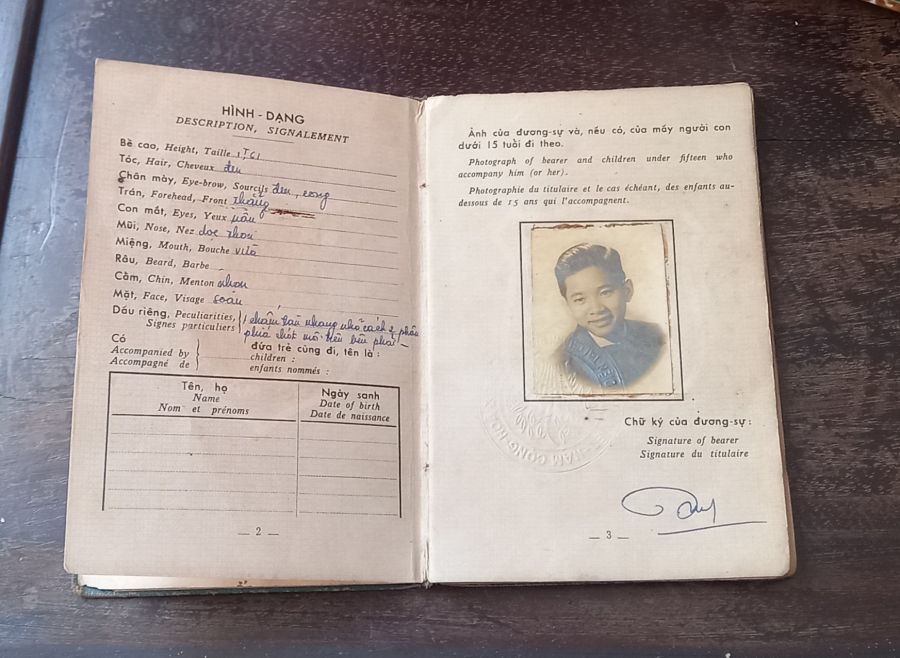 HÌNH - DẠNG
DESCRIPTION, SIGNALEMENT
Bề cao, Height, Taille 1T61
Tóc, Hair, Cheveux đen
Chân mày, Eye-brow, Sourcils đen, cong
Trán, Forehead, Front thẳng
Con mắt, Eyes, Yeux nâu
Mũi, Nose, Nez dọc
Miệng, Mouth, Bouche vừa
Râu, Beard, Barbe
Cằm, Chin, Menton nhọn
Mặt, Face, Visage soan
Dấu riêng, Peculiarities,
Signes particuliers
chấm tàn nhang nhỏ cách 2 phân
phía mô trên bên phải
Có
Accompanied by
Accompagné de
đứa trẻ cùng đi, tên là :
children :
enfants nommés :
Tên, họ
Name
Nom et prénoms
Ngày sanh
Date of birth
Date de naissance
— 2 —
Ảnh của đương-sự và, nếu có, của mấy người con
dưới 15 tuổi đi theo.
Photograph of bearer and children under fifteen who
accompany him (or her).
Photographie du titulaire et le cas échéant, des enfants au-
dessous de 15 ans qui l'accompagnent.
Chữ ký của đương-sự :
Signature of bearer
Signature du titulaire
— 3 —